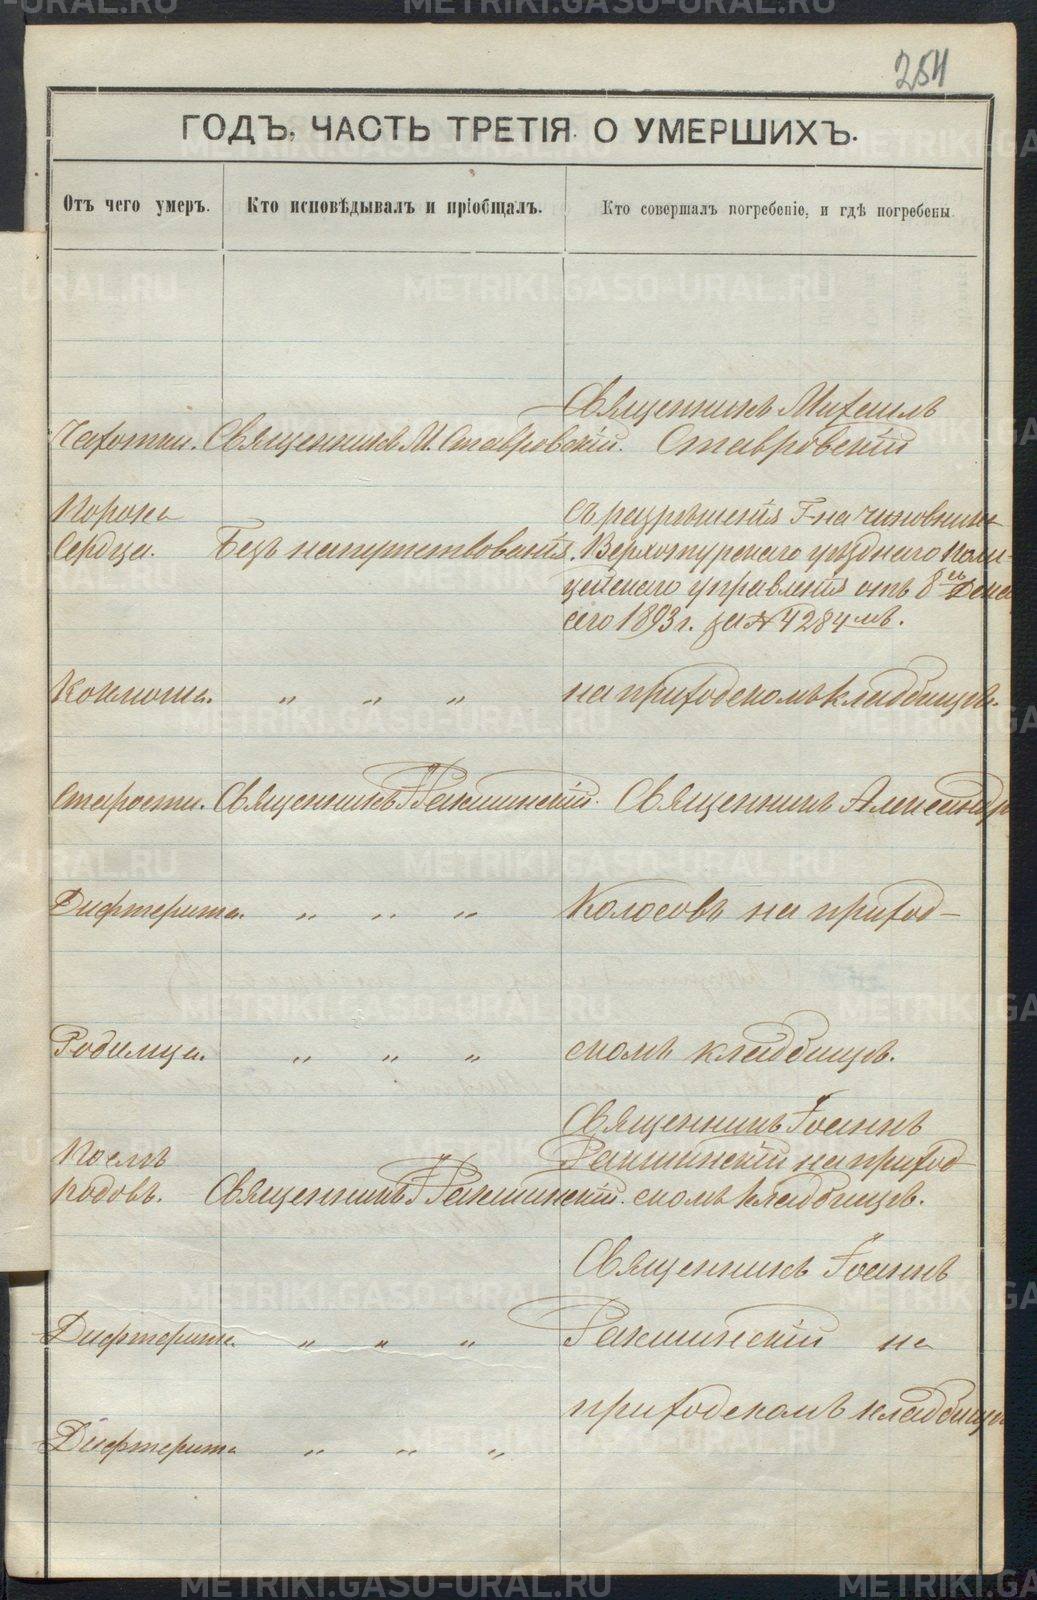 254
ГОДЪ, ЧАСТЬ ТРЕТІЯ О УМЕРШИХЪ.
Отъ чего умеръ.
Кто исповѣдывалъ и пріобщалъ.
Кто совершалъ погребеніе, и гдѣ погребены
Священникъ Михаилъ
Чахотки.
Священникъ М. Ставровскій.
Ставровскій
Порока
сердца.
Безъ напутствованія.
съ разрѣшенія Г-на чиновника
Верхотурскаго уѣзднаго поли-
цейскаго управленія отъ 8го Дека
сего 1893 г. за № 4284 мъ.
Коклюша.
" " "
на приходскомъ кладбищѣ.
Старости.
Священникъ І Ракшинскій.
Священникъ Александръ
Дифтерита.
" " "
Колосовъ на приход-
Родимца.
" " "
скомъ кладбищѣ.
Священникъ Іоаннъ
Послѣ
Ракшинскій на приход
родовъ.
Священникъ І Ракшинскій.
скомъ кладбищѣ.
Священникъ Іоаннъ
Дифтерита
" " "
Ракшинскій на
приходскомъ кладбищѣ
Дифтерита
" " "
METRIKI.GASO-URAL.RU